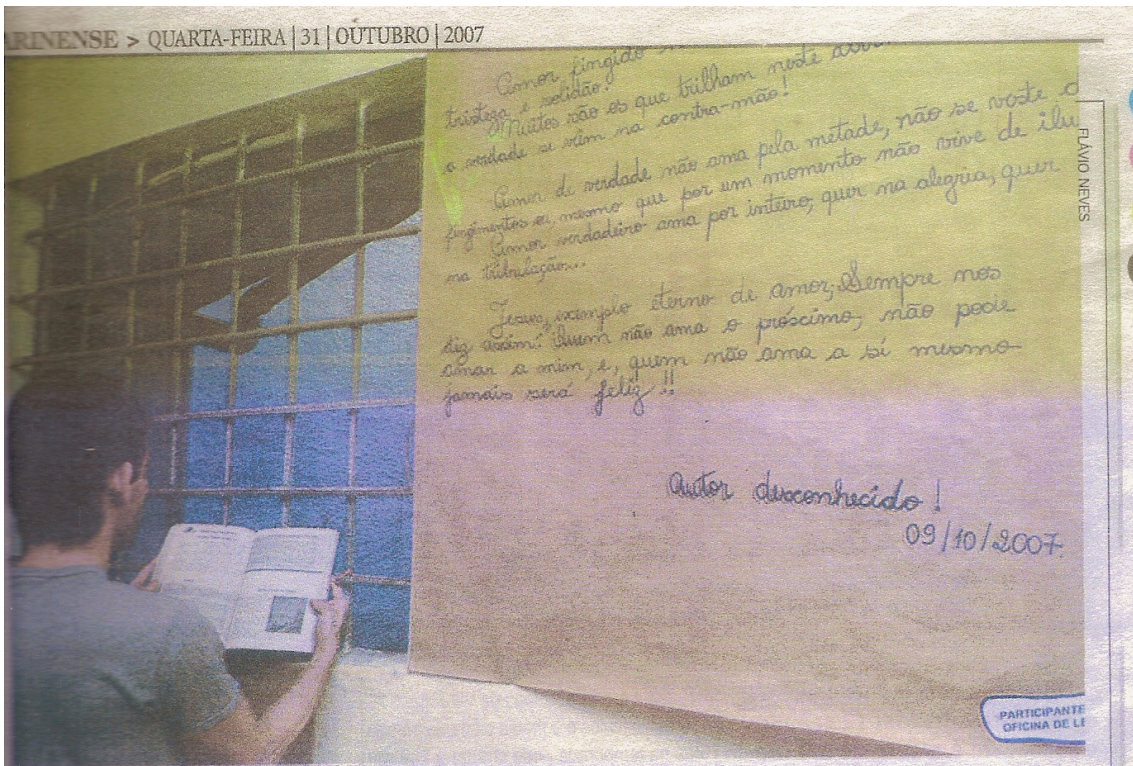 ARINENSE > QUARTA-FEIRA | 31 | OUTUBRO | 2007
Amor fingido
tristeza e solidão.
Muitos são os que trilham neste
a verdade se vêm na contra-mão!
Amor de verdade não ama pela metade, não se veste d
fingimentos ou, mesmo que por um momento não vive de ilu
Amor verdadeiro ama por inteiro, quer na alegria, quer
na tribulação...
Jesus, exemplo eterno de amor, Sempre nos
diz assim: Quem não ama o próscimo, não pode
amar a mim, e, quem não ama a si mesmo
jamais será feliz!!
Autor desconhecido!
09/10/2007.
FLÁVIO NEVES
PARTICIPANTE
OFICINA DE LE